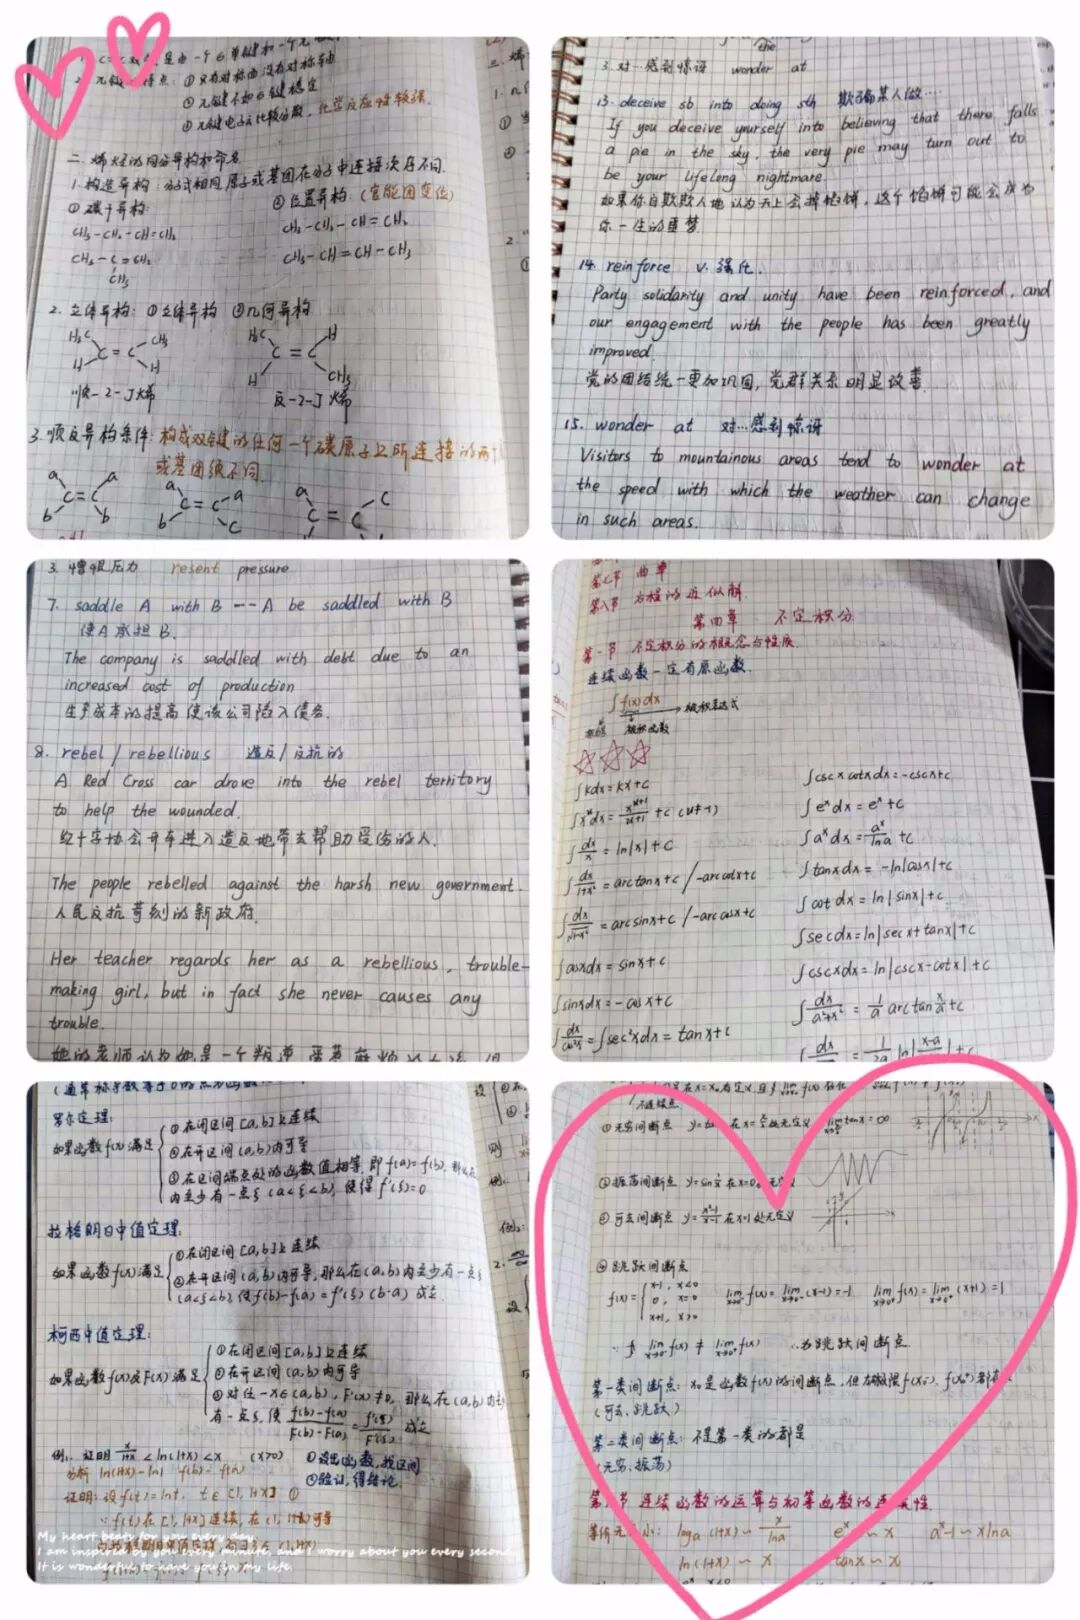 二. 烯烃的同分异构和命名
1. 构造异构: 分子式相同,原子或基团在分子中连接次序不同.
① 碳干异构: ② 位置异构: (官能团变位)
CH₃-CH₂-CH=CH₂ CH₃-CH₂-CH=CH₂
CH₃-C=CH₂ CH₃-CH=CH-CH₃
CH₃
2. 立体异构: ①立体异构 ②几何异构
H₃C CH₃ H₃C H
C=C C=C
H H H CH₃
顺-2-丁烯 反-2-丁烯
3. 顺反异构条件: 构成双键的任何一个碳原子上所连接的两个
或基团须不同.
a a a a c
C=C C=C C=C
b b b c
3. 对…感到惊讶 wonder at
13. deceive sb into doing sth 欺骗某人做….
If you deceive yourself into believing that there falls
a pie in the sky, the very pie may turn out to
be your lifelong nightmare.
如果你自欺欺人地认为天上会掉馅饼, 这个馅饼可能会成为
你一生的噩梦
14. reinforce v. 强化.
Party solidarity and unity have been reinforced, and
our engagement with the people has been greatly
improved.
党的团结统一更加巩固, 党群关系明显改善.
15. wonder at 对…感到惊讶
Visitors to mountainous areas tend to wonder at
the speed with which the weather can change
in such areas.
3. 憎恨压力 resent pressure
7. saddle A with B -- A be saddled with B
使A承担B.
The company is saddled with debt due to an
increased cost of production
生产成本的提高使该公司陷入债务.
8. rebel / rebellious 造反/反抗的
A Red Cross car drove into the rebel territory
to help the wounded.
红十字协会开车进入造反地带去帮助受伤的人.
The people rebelled against the harsh new government.
人民反抗苛刻的新政府.
Her teacher regards her as a rebellious, trouble-
making girl, but in fact she never causes any
trouble.
第七节 曲率
第八节 方程的近似解
第四章 不定积分
第一节 不定积分的概念与性质.
连续函数一定有原函数.
∫f(x)dx → 被积表达式
被积函数
∫kdx = kx+c ∫cscxcotxdx = -cscx+c
∫xᵘdx = xᵘ⁺¹/(u+1) + c (u≠-1) ∫eˣdx = eˣ+c
∫dx/x = ln|x|+c ∫aˣdx = aˣ/lna +c
∫dx/(1+x²) = arctanx+c / -arccotx+c ∫tanxdx = -ln|cosx|+c
∫dx/√(1-x²) = arcsinx+c / -arccosx+c ∫cotdx = ln|sinx|+c
∫secdx = ln|secx+tanx|+c
∫cosxdx = sinx+c ∫cscxdx = ln|cscx-cotx|+c
∫sinxdx = -cosx+c ∫dx/(a²+x²) = 1/a arctan x/a +c
∫dx/cos²x = ∫sec²xdx = tanx+c
罗尔定理:
如果函数f(x)满足 ①在闭区间[a,b]上连续
②在开区间(a,b)内可导
③在区间端点处的函数值相等, 即f(a)=f(b), 那么在
内至少有一点ξ (a<ξ<b), 使得f'(ξ)=0
拉格朗日中值定理:
如果函数f(x)满足 ①在闭区间[a,b]上连续
②在开区间(a,b)内可导, 那么在(a,b)内至少有一点ξ
(a<ξ<b), 使f(b)-f(a)=f'(ξ)(b-a) 成立.
柯西中值定理:
如果函数f(x)及F(x)满足 ①在闭区间[a,b]上连续
②在开区间(a,b)内可导
③对任一x∈(a,b), F'(x)≠0, 那么在(a,b)内
有一点ξ, 使 (f(b)-f(a))/(F(b)-F(a)) = f'(ξ)/F'(ξ) 成立
例1. 证明 x/(1+x) < ln(1+x) < x (x>0) ①设出函数, 找区间
分析 ln(1+x)-ln1 f(b)-f(a) ②验证, 得结论.
证明: 设f(t)=lnt, t∈[1,1+x] ①
∵f(t)在[1,1+x]连续, 在(1,1+x)可导
My heart beats for you every day.
I am inspired by you every minute, and I worry about you every second.
It is wonderful to have you in my life.
①无穷间断点 y=tanx 在x=π/2处无定义 lim tanx=∞
②振荡间断点 y=sin1/x 在x=0处无定义
③可去间断点 y=(x²-1)/(x-1) 在x=1处无定义
④跳跃间断点
f(x)= { x-1, x<0 0, x=0 x+1, x>0 lim f(x)=lim (x-1)=-1 lim f(x)=lim (x+1)=1
lim f(x) ≠ lim f(x) ∴为跳跃间断点.
第一类间断点: x₀是函数f(x)的间断点, 但左极限f(x₀⁻), f(x₀⁺)都存在
(可去、跳跃)
第二类间断点: 不是第一类的都是
(无穷、振荡)
节 连续函数的运算与初等函数的连续性.
等价无穷小: logₐ(1+x) ~ x/lna eˣ-1 ~ x aˣ-1 ~ xlna
ln(1+x) ~ x tanx ~ x